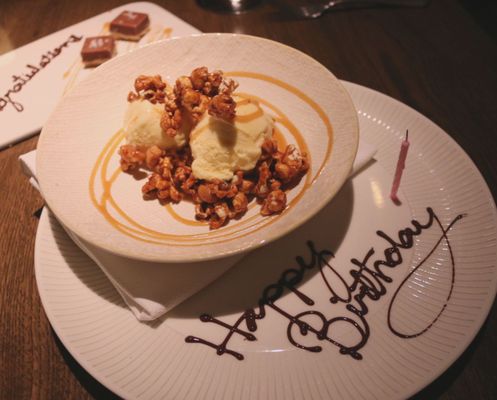 Congratulations
Happy
Birthday